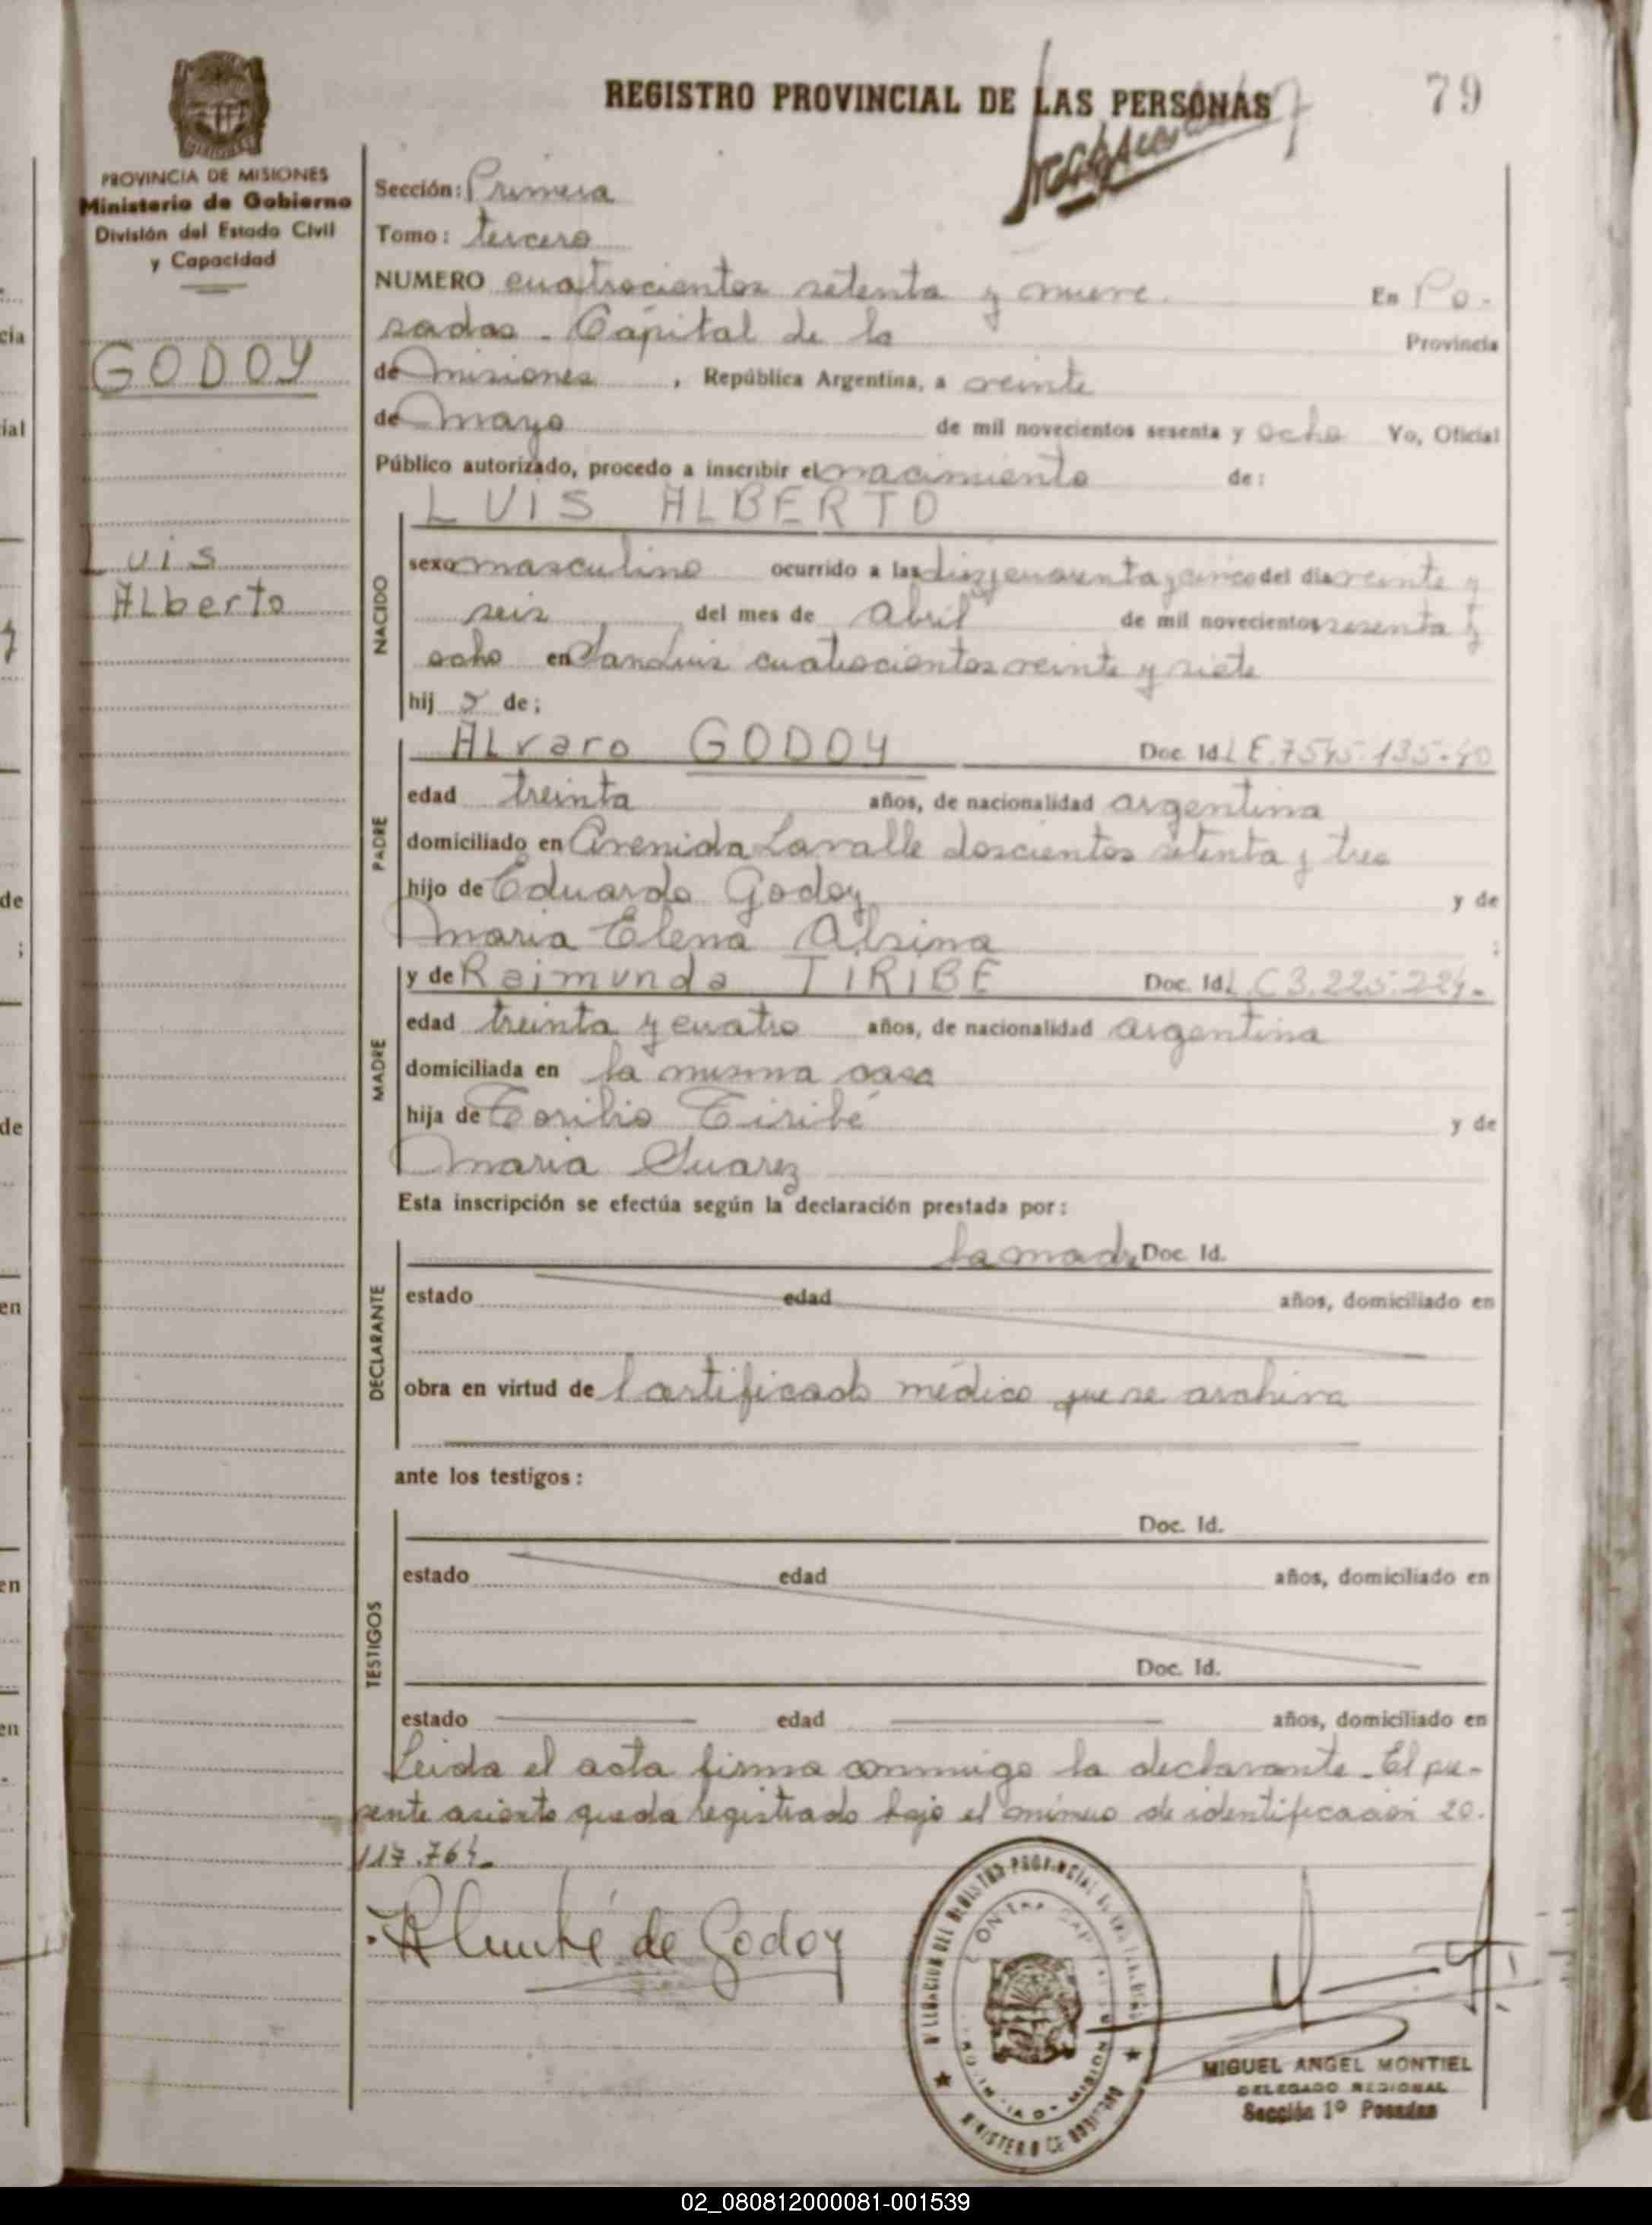 REGISTRO PROVINCIAL DE LAS PERSONAS
79
PROVINCIA DE MISIONES
Ministerio de Gobierno
División del Estado Civil
y Capacidad
GODOY
Luis
Alberto
Sección: Primera
Tomo: tercero
NUMERO cuatrocientos setenta y nueve. En Po-
sadas - Capital de la Provincia
de Misiones, República Argentina, a veinte
de Mayo de mil novecientos sesenta y ocho Yo, Oficial
Público autorizado, procedo a inscribir el nacimiento de:
LUIS ALBERTO
NACIDO
sexo masculino ocurrido a las diez y cuarenta y cinco del dia veinte y
seis del mes de Abril de mil novecientos sesenta y
ocho en San Luis cuatrocientos veinte y siete
hijo de;
PADRE
ALvaro GODOY Doc. Id. L E. 7545.135-40
edad treinta años, de nacionalidad argentina
domiciliado en Avenida Lavalle doscientos setenta y tres
hijo de Eduardo Godoy y de
Maria Elena Alsina ;
MADRE
y de Raimunda TIRIBE Doc. Id. L C 3.225.224.-
edad treinta y cuatro años, de nacionalidad argentina
domiciliada en la misma casa
hija de Toribio Tiribé y de
Maria Suarez
Esta inscripción se efectúa según la declaración prestada por:
DECLARANTE
la madre Doc. Id.
estado edad años, domiciliado en
obra en virtud de certificado médico que se archiva
ante los testigos:
TESTIGOS
Doc. Id.
estado edad años, domiciliado en
Doc. Id.
estado edad años, domiciliado en
Leida el acta firma conmigo la declarante. El pre-
sente asiento queda registrado bajo el número de identificación 20.
117.764.-
de Godoy
MIGUEL ANGEL MONTIEL
DELEGADO REGIONAL
Sección 1º Posadas
02_080812000081-001539